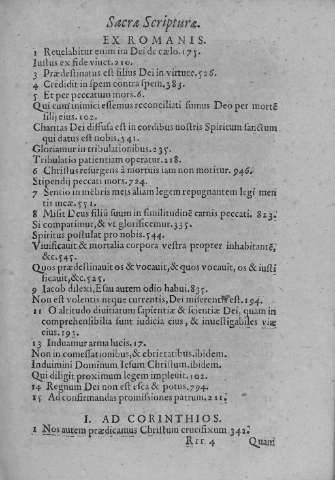 Sacræ Scripturæ.
EX ROMANIS.
1 Reuelabitur enim ira Dei de cælo. 175.
Iustus ex fide viuet. 210.
3 Prædestinatus est filius Dei in virtute. 526.
4 Credidit in spem contra spem. 383.
5 Et per peccatum mors. 6.
Qui cum inimici essemus reconciliati sumus Deo per mortē
filij eius. 102.
Charitas Dei diffusa est in cordibus nostris Spiritum sanctum
qui datus est nobis. 541.
Gloriamur in tribulationibus. 235.
Tribulatio patientiam operatur. 218.
6 Christus resurgens à mortuis iam non moritur. 946.
Stipendij peccati mors. 724.
7 Sentio in mēbris meis aliam legem repugnantem legi men
tis meæ. 551.
8 Misit Deus filiū suum in similitudinē carnis peccati. 823.
Si compatimur, & vt glorificemur. 335.
Spiritus postulat pro nobis. 544.
Viuificauit & mortalia corpora vestra propter inhabitantē,
&c. 545.
Quos prædestinauit os & vocauit, & quos vocauit, os & iusti
ficauit, &c. 525.
9 Iacob dilexi, Esau autem odio habui. 835.
Non est volentis neque currentis, Dei miserentis est. 194.
11 O altitudo diuitiarum sapientiæ & scientiæ Dei, quam in
comprehensibilia sunt iudicia eius, & inuestigabiles viæ
eius. 195.
13 Induamur arma lucis. 17.
Non in comessationibus, & ebrietatibus. ibidem.
Induimini Dominum Iesum Christum. ibidem.
Qui diligit proximum legem impleuit. 102.
14 Regnum Dei non est esca & potus. 794.
15 Ad confirmandas promissiones patrum. 211.
I. AD CORINTHIOS.
1 Nos autem prædicamus Christum crucifixum 342.
Rrr 4 Quam